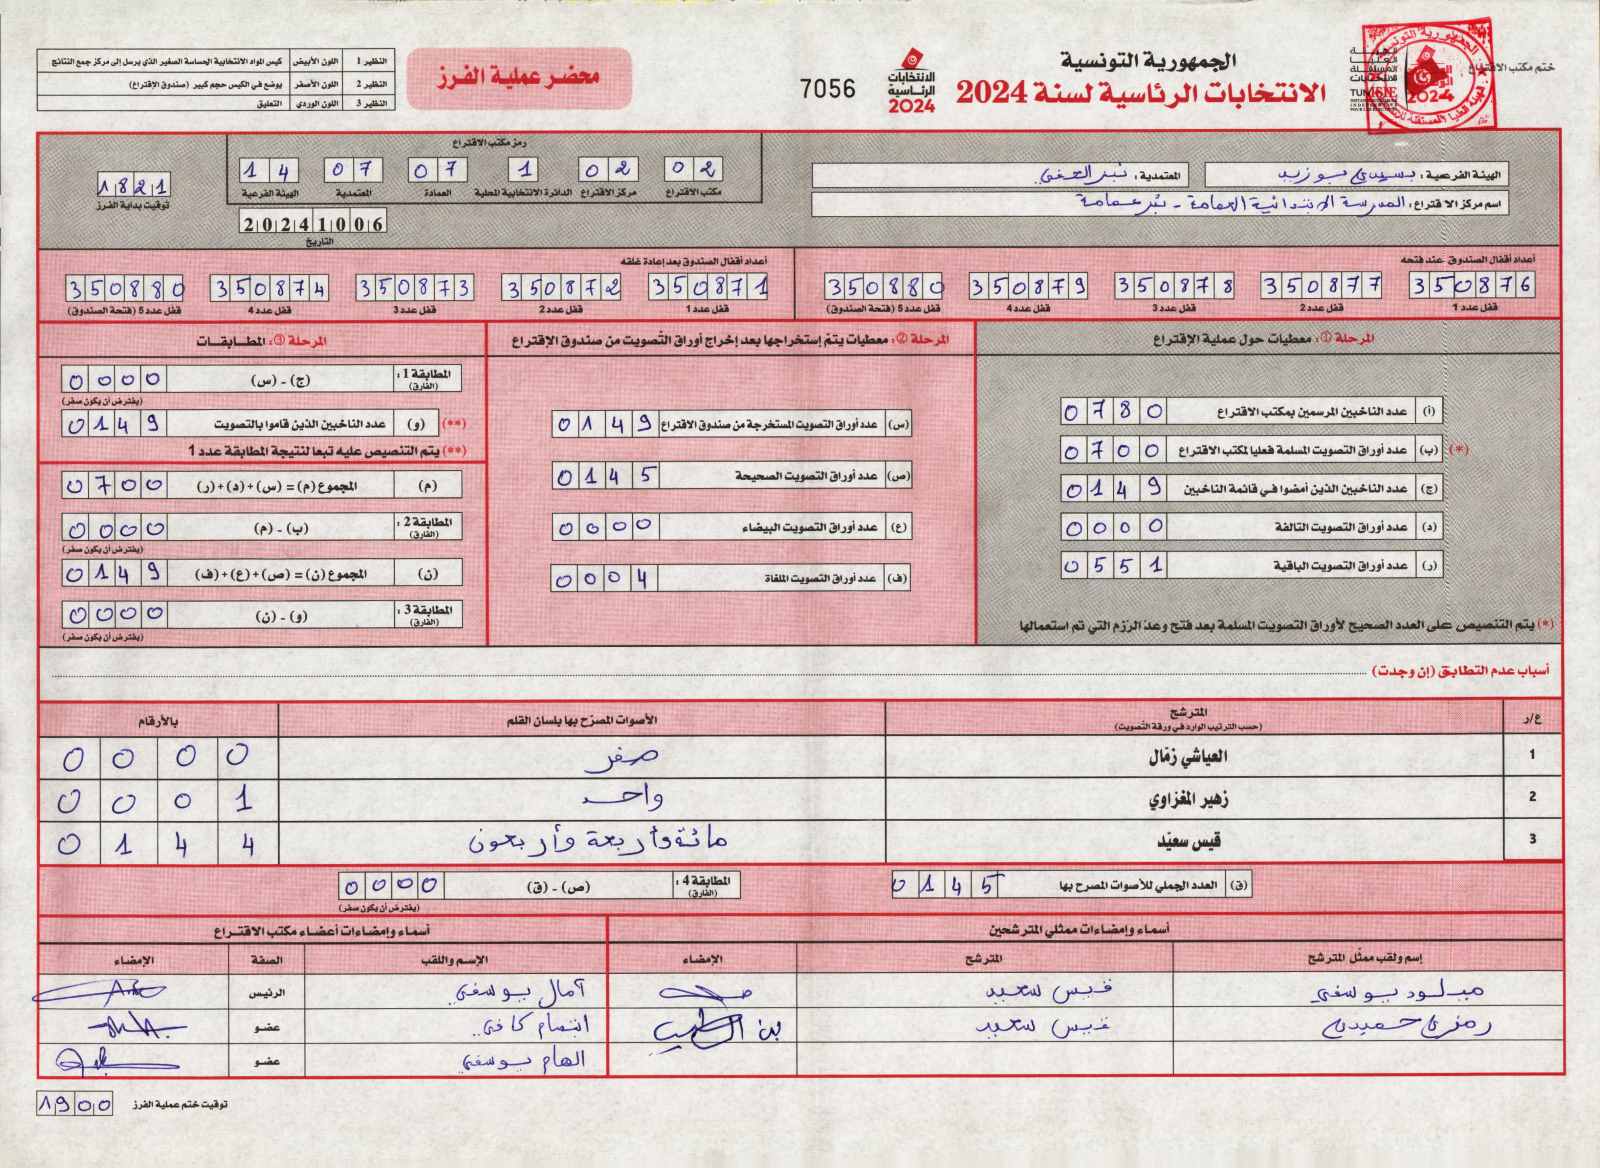 النظير 1 اللون الأبيض كيس المواد الانتخابية الحساسة الصغير الذي يرسل إلى مركز جمع النتائج
النظير 2 اللون الأصفر يوضع في الكيس حجم كبير (صندوق الإقتراع)
النظير 3 اللون الوردي التعليق
محضر عملية الفرز
7056
الانتخابات الرئاسية 2024
الجمهورية التونسية
الانتخابات الرئاسية لسنة 2024
ختم مكتب الاقتراع
الهيئة الفرعية : سيدي بوزيد
المعتمدية : بئر الحفي
اسم مركز الاقتراع : المدرسة الابتدائية العمامة - بئر عمامة
رمز مكتب الاقتراع
02 02 1 07 07 14
مكتب الاقتراع مركز الاقتراع الدائرة الانتخابية المحلية العمادة المعتمدية الهيئة الفرعية
20241006
التاريخ
1821
توقيت بداية الفرز
أعداد أقفال الصندوق عند فتحه
350876 350877 350878 350879 350880
قفل عدد 1 قفل عدد 2 قفل عدد 3 قفل عدد 4 قفل عدد 5 (فتحة الصندوق)
أعداد أقفال الصندوق بعد إعادة غلقه
350871 350872 350873 350874 350880
قفل عدد 1 قفل عدد 2 قفل عدد 3 قفل عدد 4 قفل عدد 5 (فتحة الصندوق)
المرحلة ①: معطيات حول عملية الإقتراع
(أ) عدد الناخبين المرسمين بمكتب الاقتراع 0780
(*) (ب) عدد أوراق التصويت المسلمة فعليا لمكتب الاقتراع 0700
(ج) عدد الناخبين الذين أمضوا في قائمة الناخبين 0149
(د) عدد أوراق التصويت التالفة 0000
(ر) عدد أوراق التصويت الباقية 0551
(*) يتم التنصيص على العدد الصحيح لأوراق التصويت المسلمة بعد فتح وعدّ الرزم التي تم استعمالها
المرحلة ②: معطيات يتمّ إستخراجها بعد إخراج أوراق التّصويت من صندوق الإقتراع
(س) عدد أوراق التصويت المستخرجة من صندوق الاقتراع 0149
(ص) عدد أوراق التصويت الصحيحة 0145
(ع) عدد أوراق التصويت البيضاء 0000
(ف) عدد أوراق التصويت الملغاة 0004
المرحلة ③: المطابقات
المطابقة 1 : (الفارق) (ج) - (س) 0000
(يفترض أن يكون صفر)
(**) (و) عدد الناخبين الذين قاموا بالتصويت 0149
(**) يتم التنصيص عليه تبعا لنتيجة المطابقة عدد 1
(م) المجموع (م) = (س) + (د) + (ر) 0700
المطابقة 2 : (الفارق) (ب) - (م) 0000
(يفترض أن يكون صفر)
(ن) المجموع (ن) = (ص) + (ع) + (ف) 0149
المطابقة 3 : (الفارق) (و) - (ن) 0000
(يفترض أن يكون صفر)
أسباب عدم التطابق (إن وجدت)
ع/ر المترشح (حسب الترتيب الوارد في ورقة التصويت) الأصوات المصرّح بها بلسان القلم بالأرقام
1 العياشي زمّال صفر 0000
2 زهير المغزاوي واحد 0001
3 قيس سعيّد مائة وأربعة وأربعون 0144
(ق) العدد الجملي للأصوات المصرح بها 0145
المطابقة 4 : (الفارق) (ص) - (ق) 0000
(يفترض أن يكون صفر)
أسماء وإمضاءات ممثلي المترشحين
إسم ولقب ممثّل المترشح المترشح الإمضاء
ميلود يوسفي قيس سعيد
رمزي حميدي قيس سعيد
أسماء وإمضاءات أعضاء مكتب الاقتراع
الإسم واللقب الصفة الإمضاء
آمال يوسفي الرئيس
ابتسام كافي عضو
الهام يوسفي عضو
توقيت ختم عملية الفرز 1900